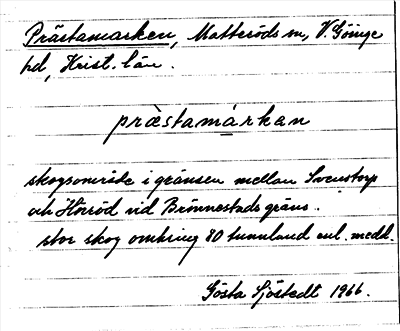 Prästamarken, Matteröds sn, V. Göinge
hd, Krist. län.
præstamarkan
skogsområde i gränsen mellan Svenstorp
och Hörröd vid Brönnestads gräns.
stor skog omkring 80 tunnland enl. medd.
Gösta Sjöstedt 1966.